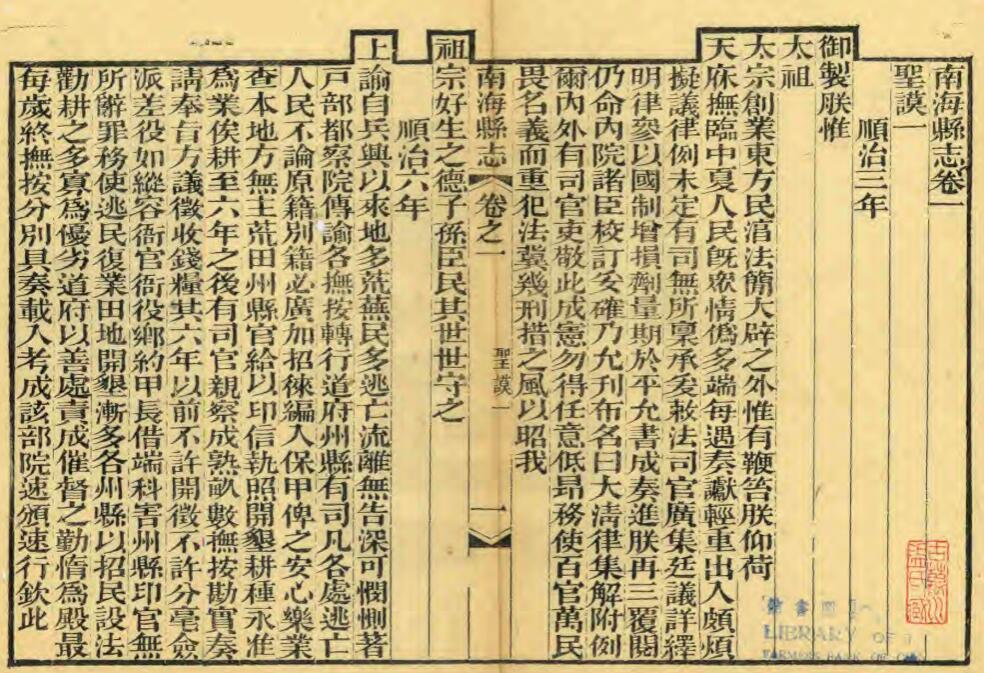 南海縣志卷一
聖謨一
順治三年
御製朕惟
太祖
太宗創業東方民淳法簡大辟之外惟有鞭笞朕仰荷
天庥撫臨中夏人民旣衆情僞多端每遇奏讞輕重出入頗煩
擬議律例未定有司無所稟承爰敕法司官廣集廷議詳繹
明律參以國制增損劑量期於平允書成奏進朕再三覆閱
仍命內院諸臣校訂妥確乃允刊布名曰大清律集解附例
爾內外有司官吏敬此成憲勿得任意低昻務使百官萬民
畏名義而重犯法冀幾刑措之風以昭我
南海縣志
卷之一
聖謨一
一
祖宗好生之德子孫臣民其世世守之
順治六年
上諭自兵興以來地多荒蕪民多逃亡流離無告深可憫惻著
戸部都察院傳諭各撫按轉行道府州縣有司凡各處逃亡
人民不論原籍別籍必廣加招徠編入保甲俾之安心樂業
查本地方無主荒田州縣官給以印信執照開墾耕種永准
爲業俟耕至六年之後有司官親察成熟畝數撫按勘實奏
請奉旨方議徵收錢糧其六年以前不許開徵不許分毫僉
派差役如縱容衙官衙役鄉約甲長借端科害州縣印官無
所辭罪務使逃民復業田地開墾漸多各州縣以招民設法
勸耕之多寡爲優劣道府以善處責成催督之勤惰爲殿最
每歲終撫按分別具奏載入考成該部院速頒速行欽此
書圖
LIBRARY OF
FARMERS BANK OF